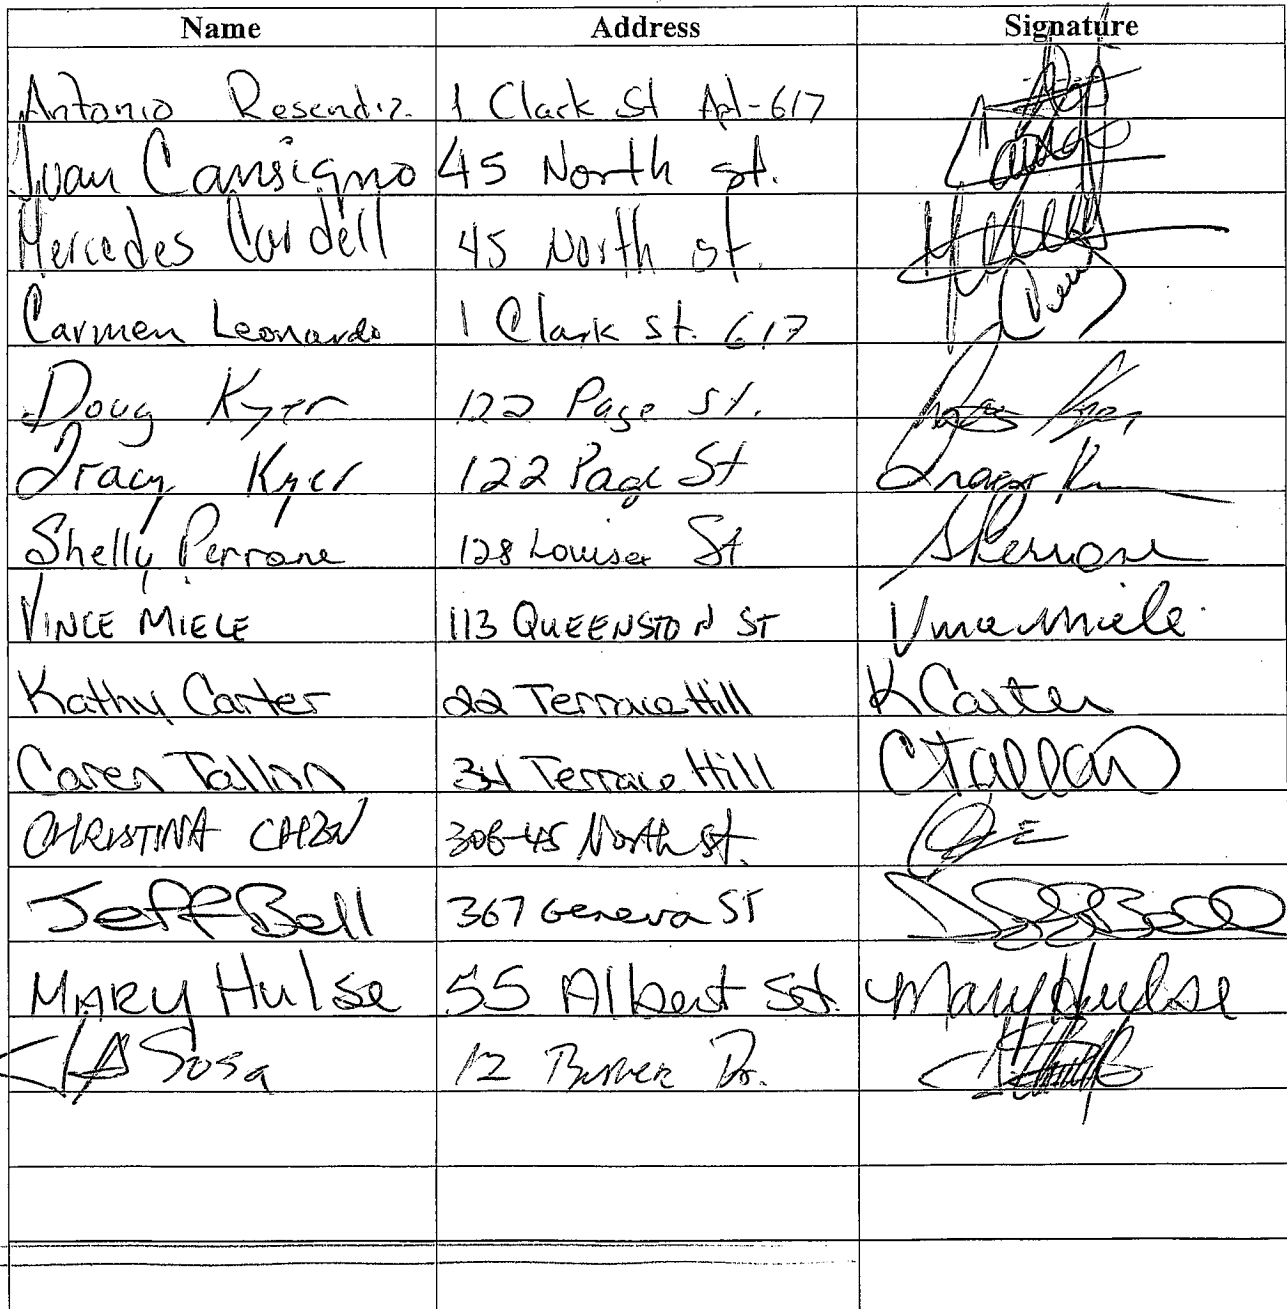 Name Address Signature
Antonio Resendiz. 1 Clark St Apt-617
Juan Cansigno 45 North st.
Mercedes Cordell 45 North st.
Carmen Leonardo 1 Clark st. 617
Doug Kyer 122 Page St.
Tracy Kyer 122 Page St Tracy
Shelly Perrone 128 Louisa St SPerrone
VINCE MIELE 113 QUEENSTON ST Vince Miele
Kathy Carter 22 Terrace Hill K Carter
Caren Tallon 34 Terrace Hill CTallon
CHRISTINA 308-45 North st.
Jeff Bell 367 Geneva ST Jeff Bell
MARY Hulse 55 Albert Mary Hulse
Sosa 12 Dr.